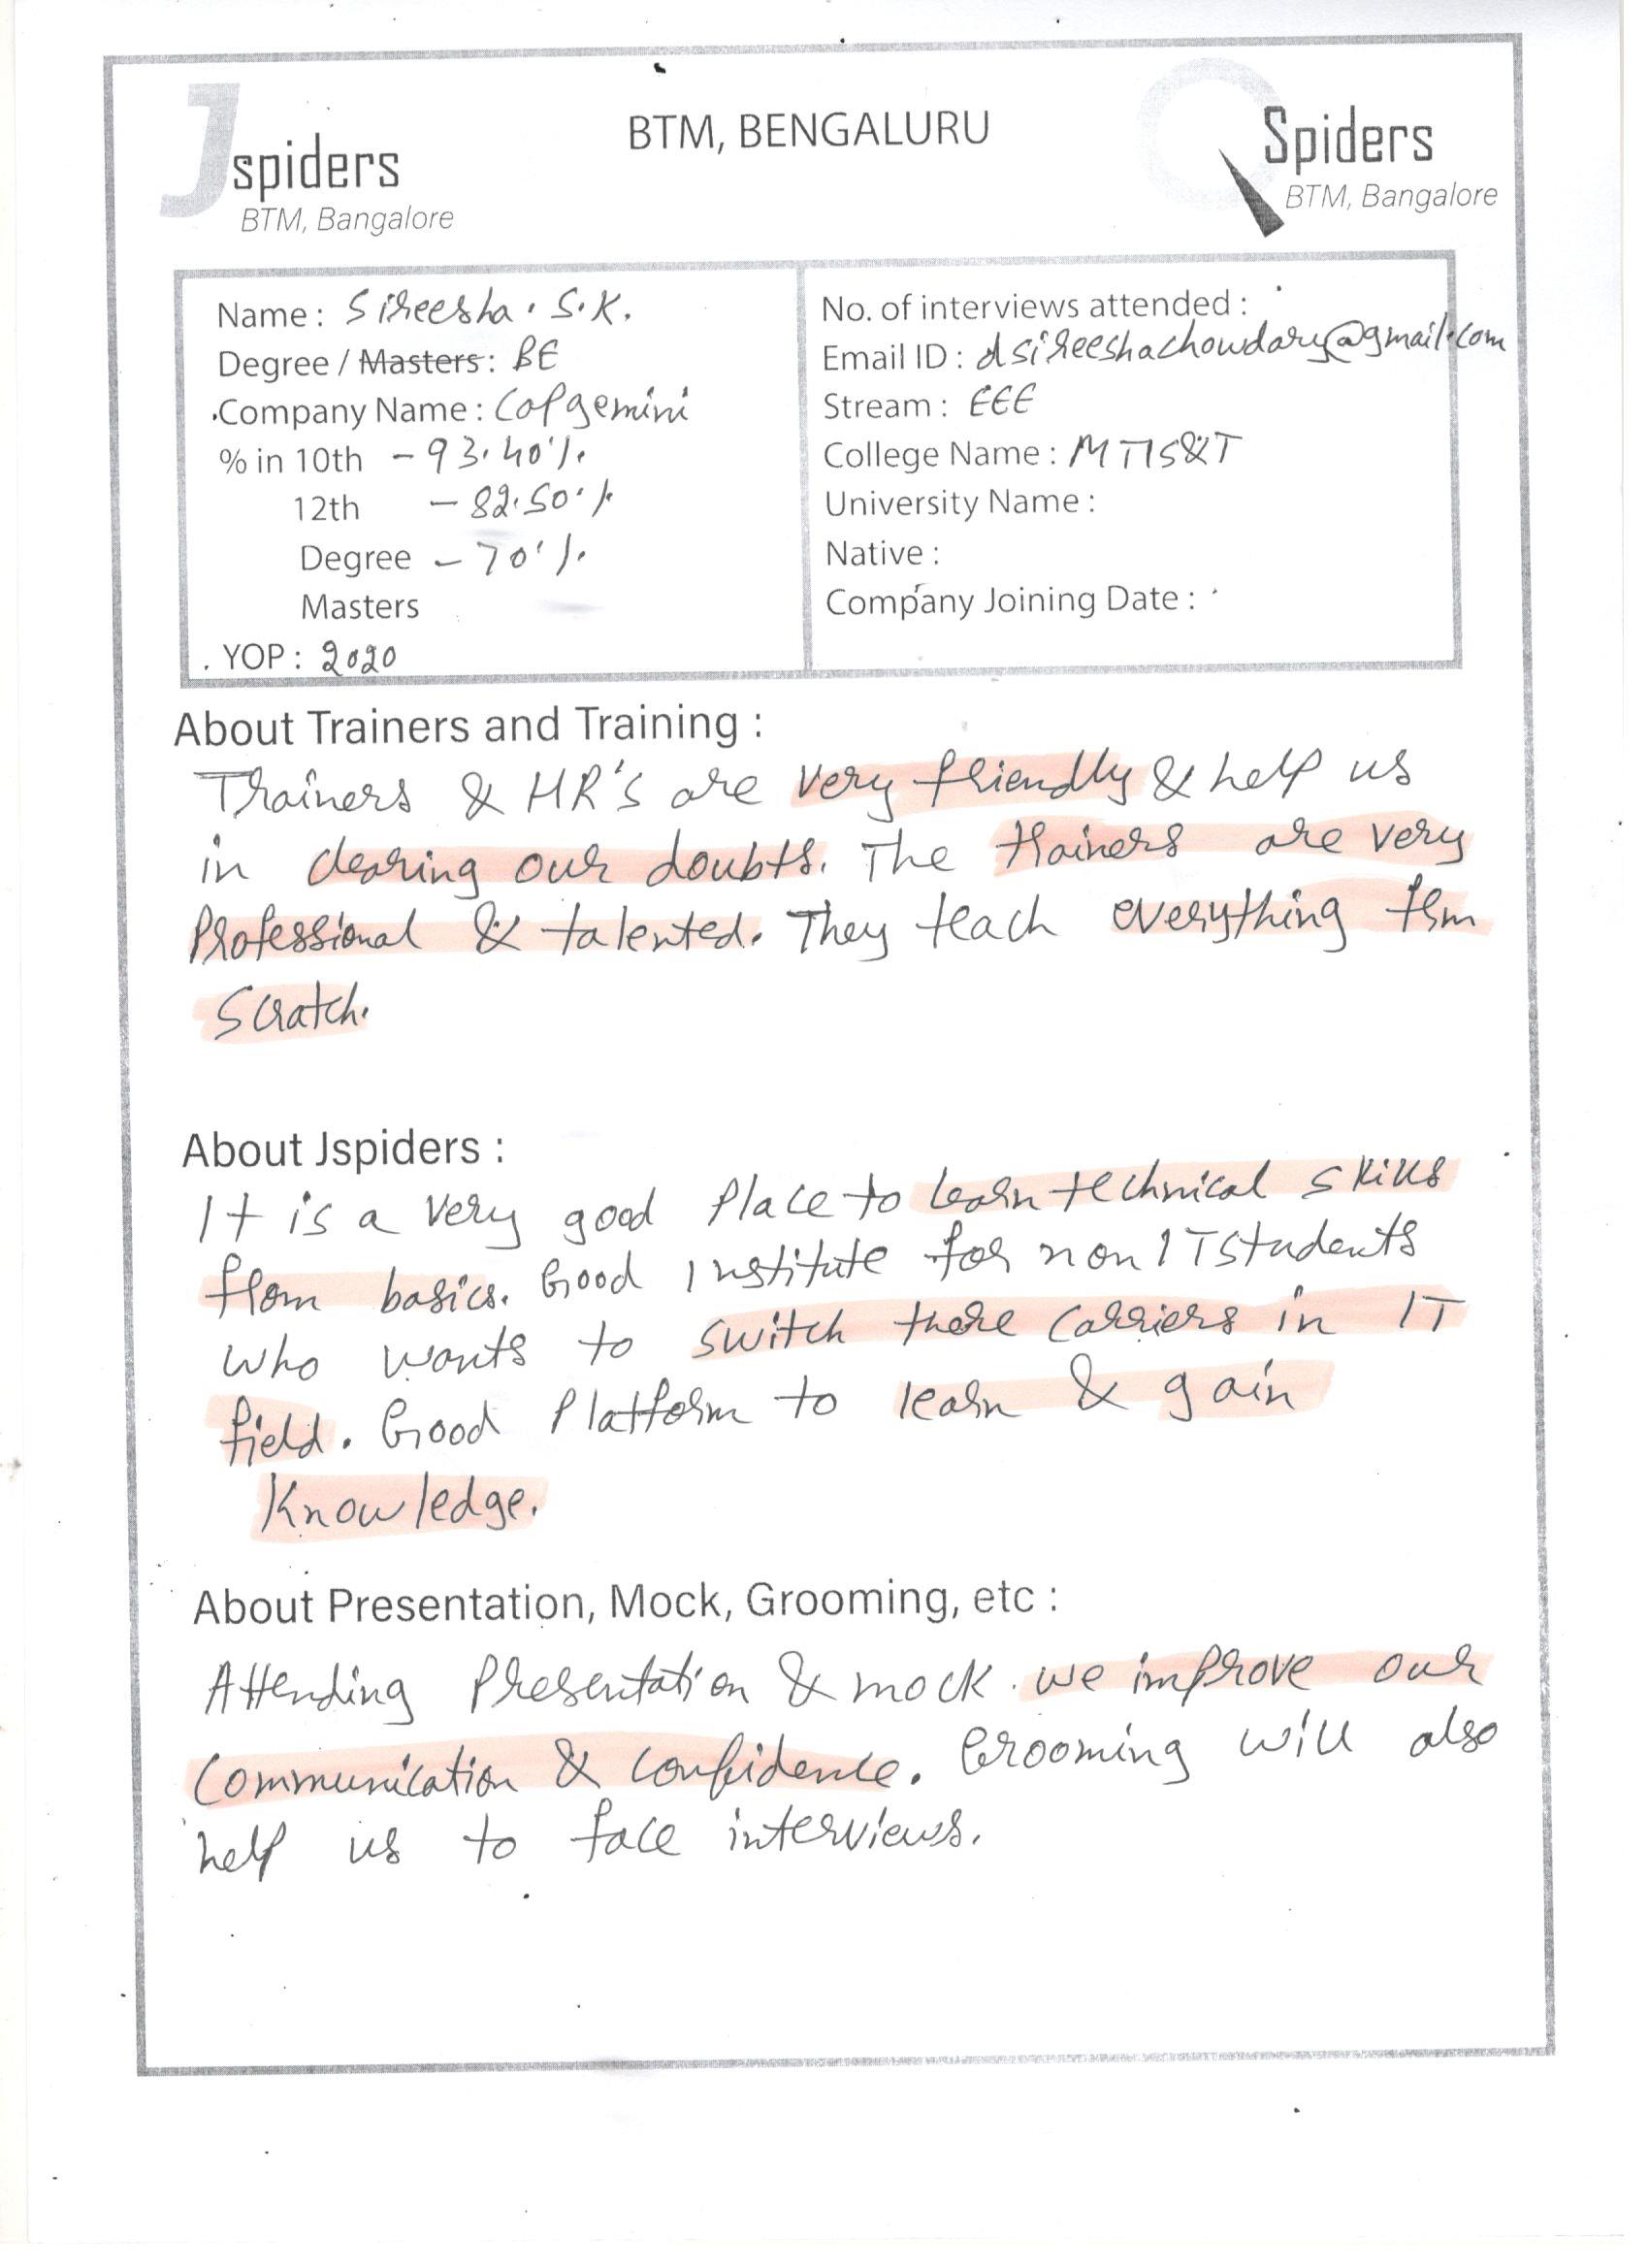 Jspiders
BTM, Bangalore
BTM, BENGALURU
QSpiders
BTM, Bangalore
Name : Sireesha . S.K.
Degree / Masters : BE
Company Name : Capgemini
% in 10th - 93.40%.
12th - 82.50%
Degree - 70%.
Masters
YOP : 2020
No. of interviews attended :
Email ID : dsireeshachowdary@gmail.com
Stream : EEE
College Name : MTIS&T
University Name :
Native :
Company Joining Date :
About Trainers and Training :
Trainers & HR's are very friendly & help us
in clearing our doubts. The trainers are very
Professional & talented. They teach everything from
Scratch.
About Jspiders :
It is a very good Place to learn technical skills
from basics. Good Institute for non IT students
who wants to switch there carriers in IT
field. Good Platform to learn & gain
Knowledge.
About Presentation, Mock, Grooming, etc :
Attending Presentation & mock. we improve our
Communication & confidence. Grooming will also
help us to face interviews.